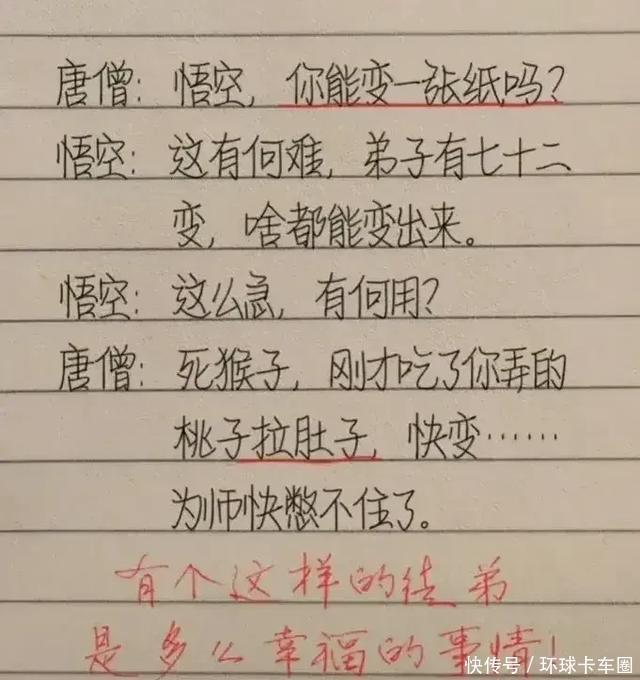 唐僧：悟空，你能变一张纸吗？
悟空：这有何难，弟子有七十二
变，啥都能变出来。
悟空：这么急，有何用？
唐僧：死猴子，刚才吃了你弄的
桃子拉肚子，快变……
为师快憋不住了。
有个这样的徒弟
是多么幸福的事情！
快传号／环球卡车圈